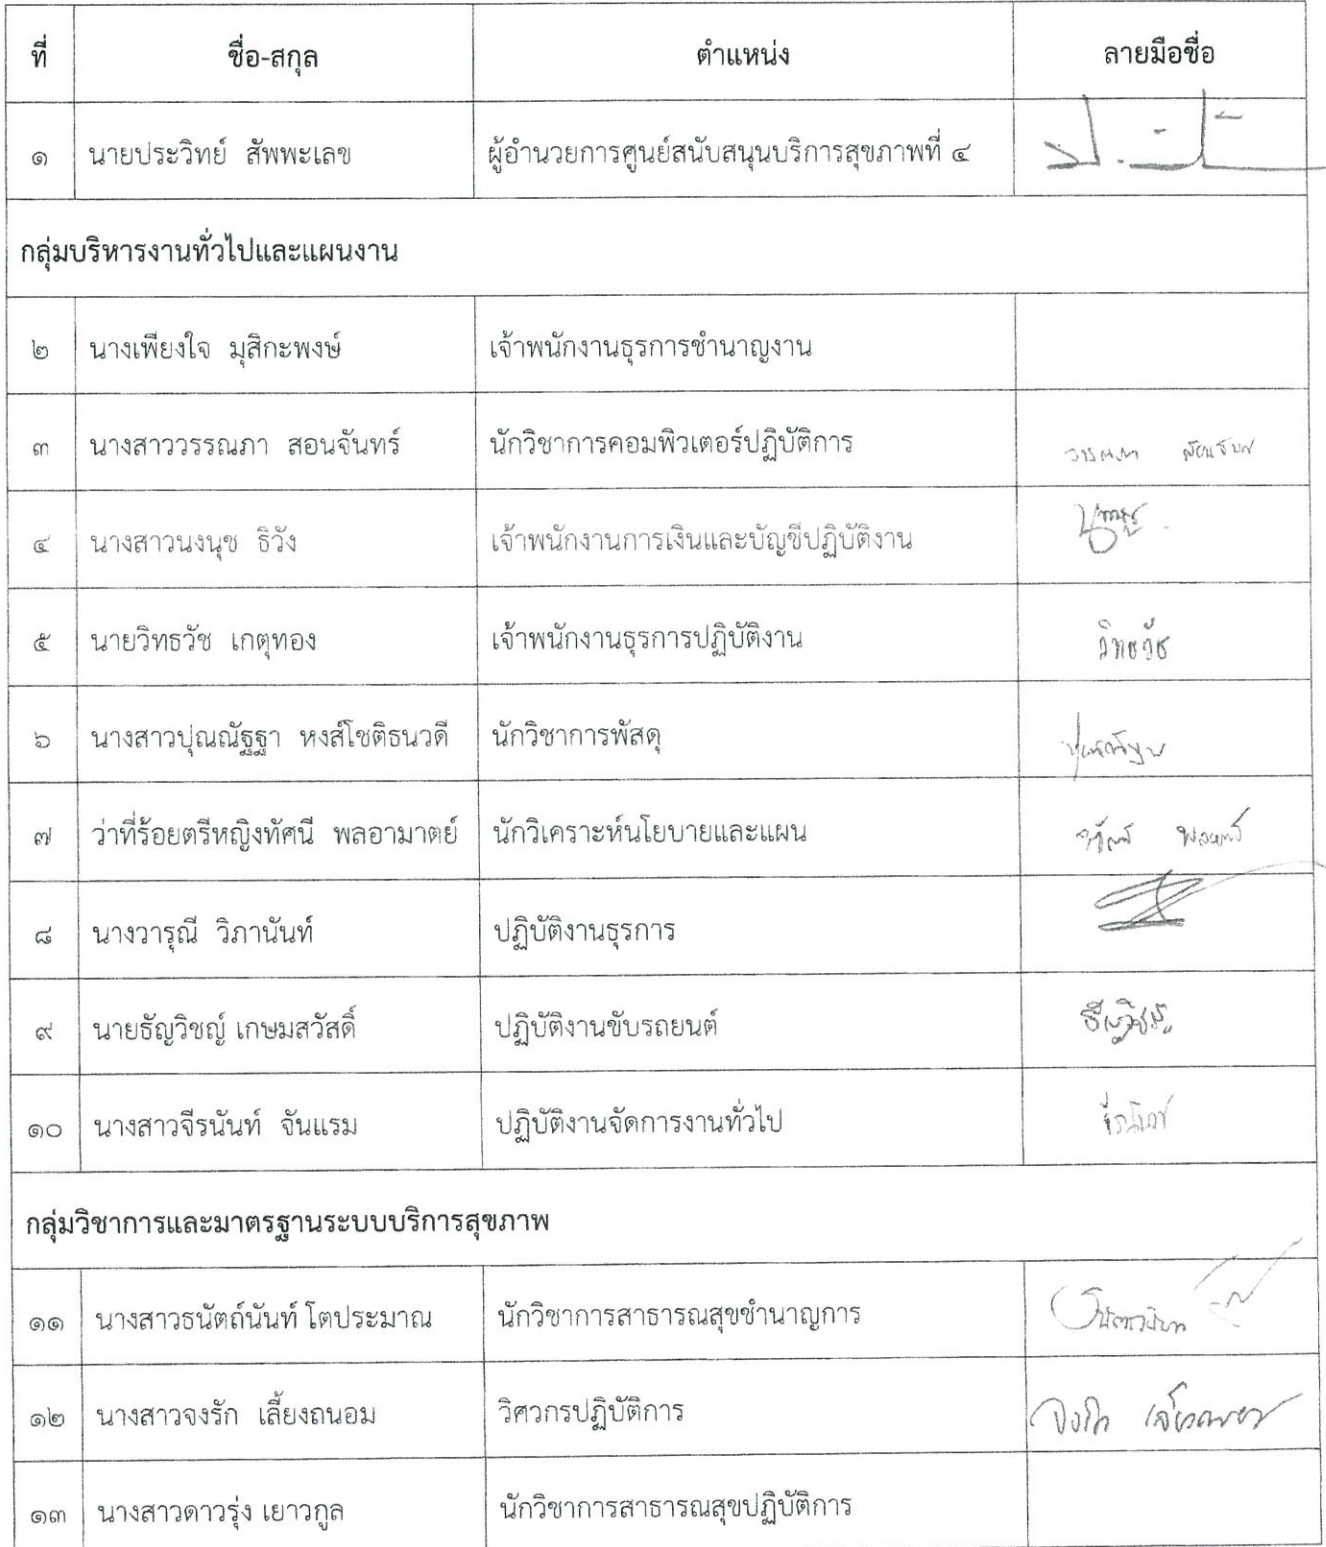 ที่ ชื่อ-สกุล ตำแหน่ง ลายมือชื่อ
๑ นายประวิทย์ สัพพะเลข ผู้อำนวยการศูนย์สนับสนุนบริการสุขภาพที่ ๔
กลุ่มบริหารงานทั่วไปและแผนงาน
๒ นางเพียงใจ มุสิกะพงษ์ เจ้าพนักงานธุรการชำนาญงาน
๓ นางสาววรรณภา สอนจันทร์ นักวิชาการคอมพิวเตอร์ปฏิบัติการ
๔ นางสาวนงนุช ธิวัง เจ้าพนักงานการเงินและบัญชีปฏิบัติงาน
๕ นายวิทธวัช เกตุทอง เจ้าพนักงานธุรการปฏิบัติงาน วิทธวัช
๖ นางสาวปุณณัฐฐา หงส์โชติธนวดี นักวิชาการพัสดุ
๗ ว่าที่ร้อยตรีหญิงทัศนี พลอามาตย์ นักวิเคราะห์นโยบายและแผน
๘ นางวารุณี วิภานันท์ ปฏิบัติงานธุรการ
๙ นายธัญวิชญ์ เกษมสวัสดิ์ ปฏิบัติงานขับรถยนต์
๑๐ นางสาวจีรนันท์ จันแรม ปฏิบัติงานจัดการงานทั่วไป
กลุ่มวิชาการและมาตรฐานระบบบริการสุขภาพ
๑๑ นางสาวธนัตถ์นันท์ โตประมาณ นักวิชาการสาธารณสุขชำนาญการ
๑๒ นางสาวจงรัก เลี้ยงถนอม วิศวกรปฏิบัติการ
๑๓ นางสาวดาวรุ่ง เยาวกูล นักวิชาการสาธารณสุขปฏิบัติการ